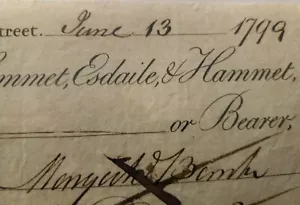 treet. June 13 1799
mmet, Esdaile, & Hammet,
or Bearer,